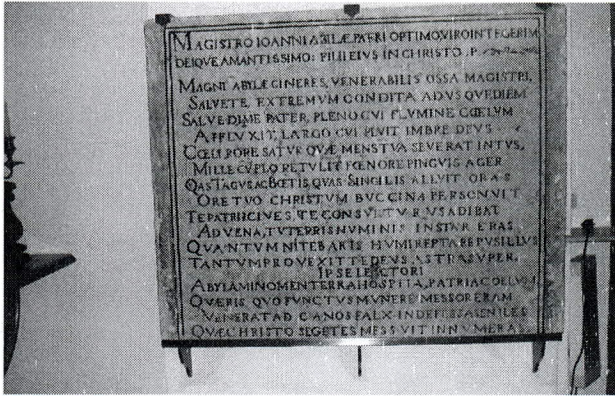 MAGISTRO IOANNI AVILÆ, PATRI OPTIMO, VIRO INTEGERIM
DEIQVE AMANTISSIMO: FILII EIVS IN CHRISTO. P.
MAGNI ABYLÆ CINERES, VENERABILIS OSSA MAGISTRI,
SALVETE, EXTREMVM CONDITA AD VSQVE DIEM
SALVE DIVE PATER, PLENO CVI FLVMINE COELVM
AFFLVXIT, LARGO CVI PLVIT IMBRE DEVS
COELI RORE SATVR QVÆ MENS TVA SEVERAT INTVS,
MILLE CVPLO RETVLIT FOENORE PINGVIS AGER
QAS TAGVS AC BOETIS, QVAS SINGILIS ALLVIT ORAS
ORE TVO CHRISTVM BVCCINA PERSONVIT
TE PATRII CIVES, TE CONSVLTVRVS ADIBAT
ADVENA, TV TERRIS NVMINIS INSTAR ERAS
QVANTVM NITEBARIS HVMI REPTARE PVSILLVS
TANTVM PROVEXIT TE DEVS ASTRA SVPER,
IPSE LECTORI
ABYLA MI NOMEN TERRA HOSPITA, PATRIA COELVM
QVÆRIS QVO FVNCTVS MVNERE MESSOR ERAM
VENERAT AD CANOS FALX INDEFESSA SENILES
QVÆ CHRISTO SEGETES MESSVIT INNVMERAS